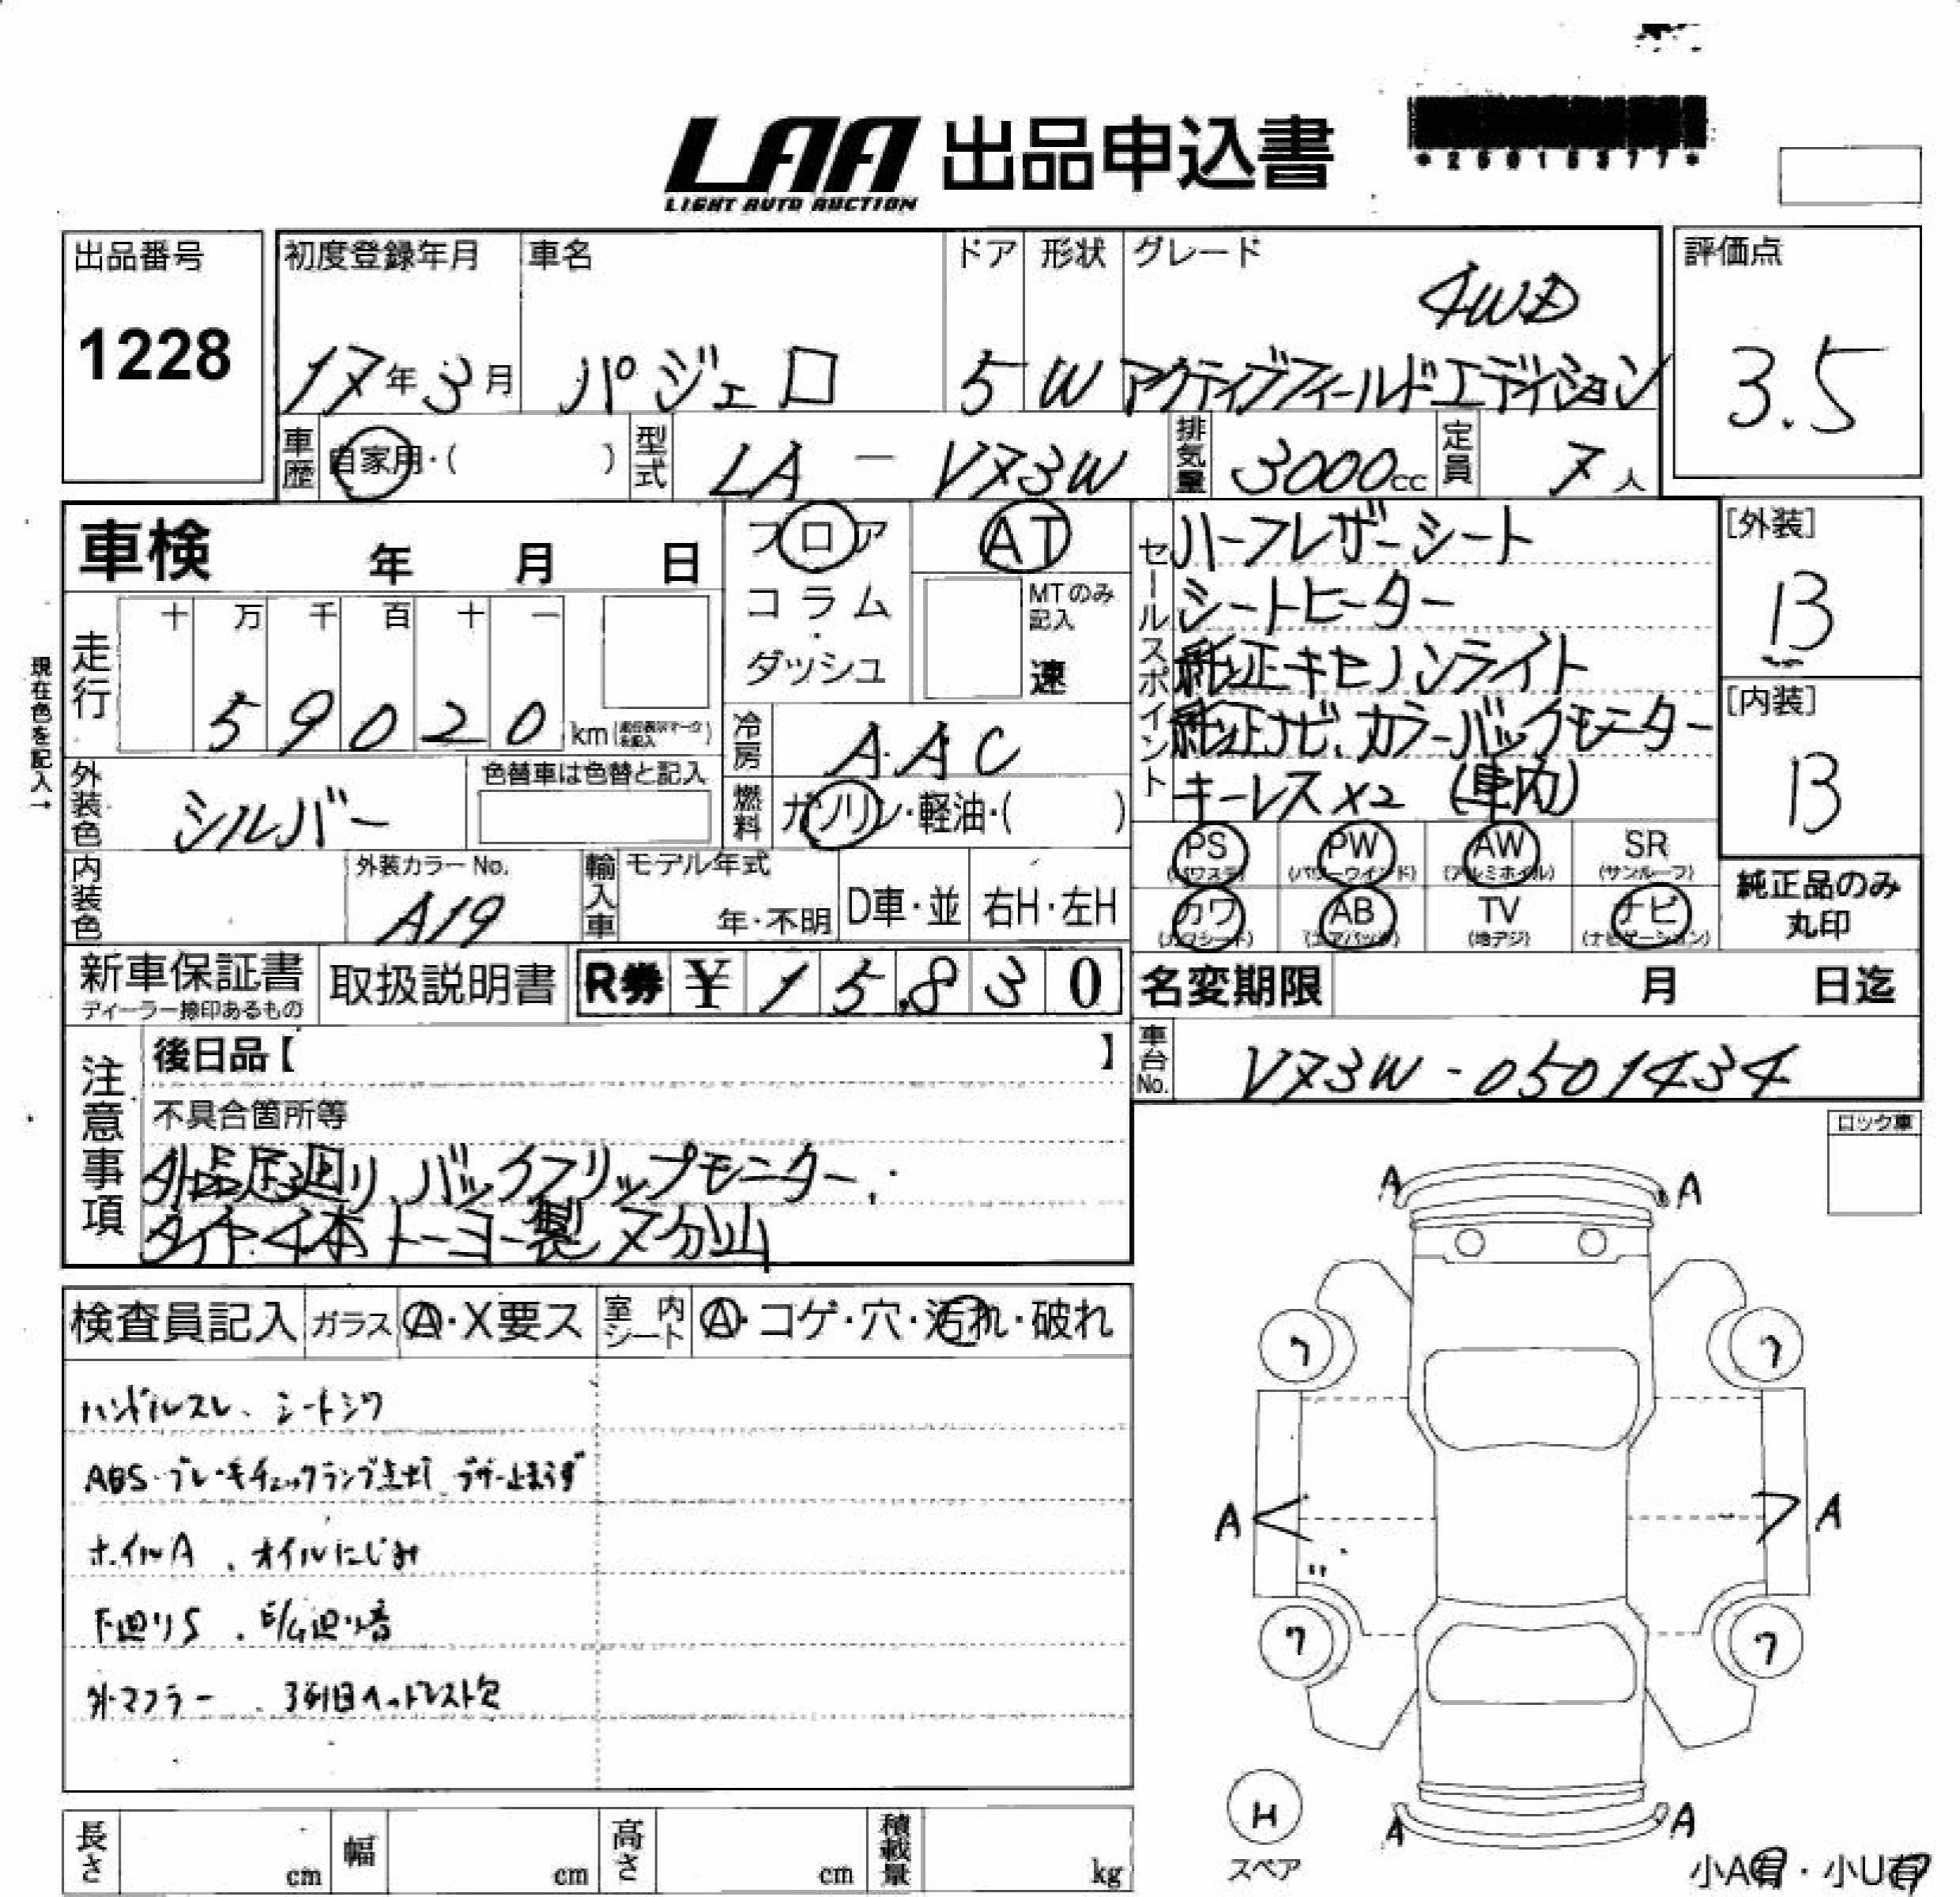 LAA 出品申込書
LIGHT AUTO AUCTION
出品番号
1228
初度登録年月
17年3月
車名
パジェロ
ドア
5
形状
W
グレード
4WD
アクティブフィールドエディション
評価点
3.5
車歴
自家用・( )
型式
LA-V73W
排気量
3000cc
定員
7人
車検 年 月 日
フロア
コラム
ダッシュ
AT
MTのみ記入
速
現在色を記入→
走行
十 万 千 百 十 一
5 9 0 2 0 km
冷房
AAC
外装色
シルバー
色替車は色替と記入
燃料
ガソリン・軽油・( )
内装色
外装カラーNo.
A19
輸入車
モデル年式
年・不明
D車・並
右H・左H
セールスポイント
ハーフレザーシート
シートヒーター
純正キセノンライト
純正ナビ、カラーバックモニター
キーレスX2 (車内)
[外装]
13
[内装]
13
PS PW AW SR
(パワステ) (パワーウインド) (アルミホイル) (サンルーフ)
カワ AB TV ナビ
(カワシート) (エアバッグ) (地デジ) (ナビゲーション)
純正品のみ
丸印
新車保証書
ディーラー捺印あるもの
取扱説明書
R券 ¥ 15,830
名変期限 月 日迄
車台No.
V73W-0501434
注意事項
後日品【 】
不具合箇所等
外品足廻り、バックフリップモニター、
タイヤ4本トーヨー製 7分山
ロック車
検査員記入
ガラス
A・X要ス
室内シート
A・コゲ・穴・汚れ・破れ
ハンドルスレ、シートシワ
ABS・ブレーキチェックランプ点灯 ブザー止まらず
ホイルA、オイルにじみ
下廻りS、E/G廻り音
外マフラー、3列目ヘッドレスト欠
A A
7 7
A A
7 7
A A
H
スペア
小A有・小U有
長さ cm
幅 cm
高さ cm
積載量 kg